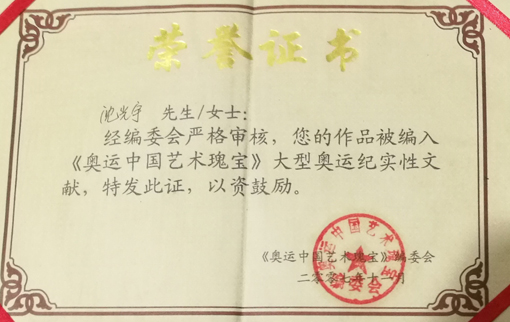 荣誉证书
沈光宇 先生/女士：
经编委会严格审核，您的作品被编入
《奥运中国艺术瑰宝》大型奥运纪实性文
献，特发此证，以资鼓励。
《奥运中国艺术瑰宝》编委会
二〇〇七年十一月